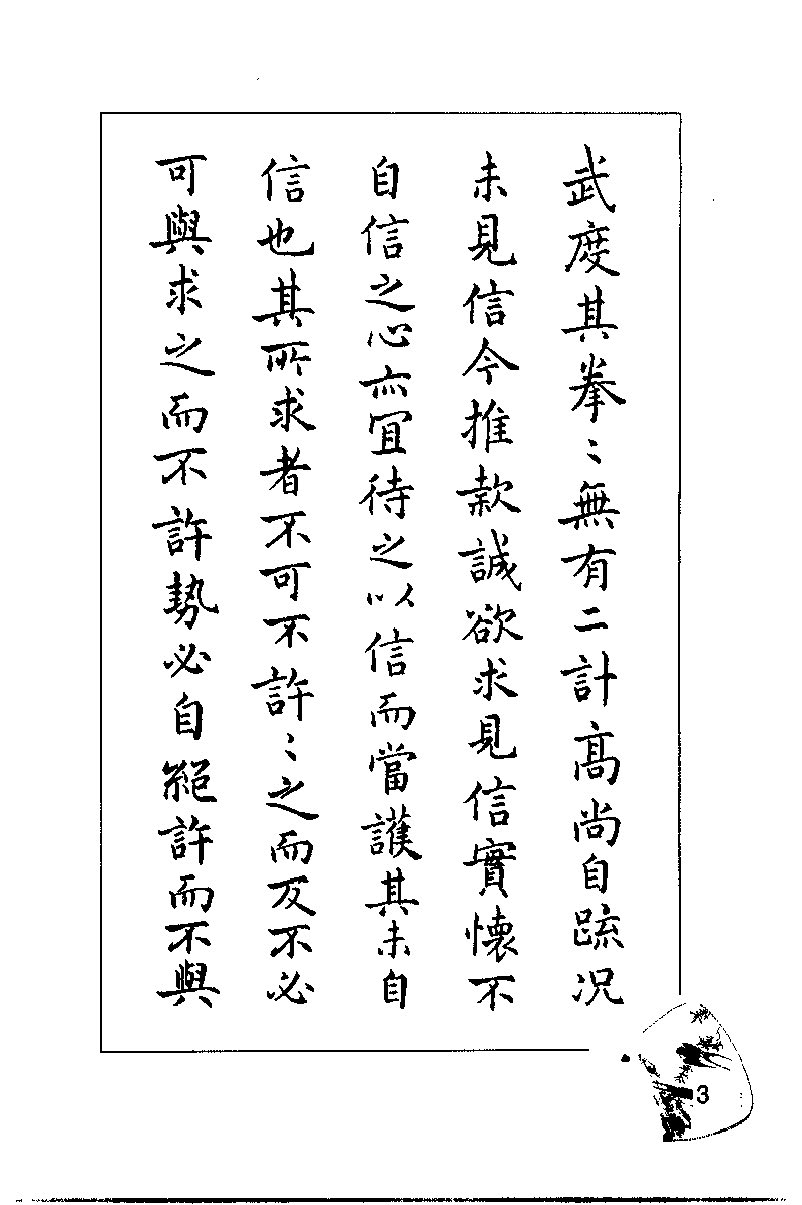 武度其拳〻無有二計髙尚自疏况
未見信今推款誠欲求見信實懷不
自信之心亦宜待之以信而當護其未自
信也其所求者不可不許〻之而反不必
可與求之而不許勢必自絕許而不與
3